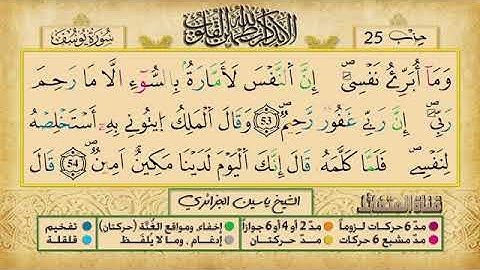 حِزْب 25
أَلَا بِذِكْرِ اللَّهِ تَطْمَئِنُّ الْقُلُوبُ
سُورَةُ يُوسُفَ
وَمَآ أُبَرِّئُ نَفْسِيٓ إِنَّ اَ۬لنَّفْسَ لَأَمَّارَةُۢ بِالسُّوٓءِ الَّا مَا رَحِمَ
رَبِّيَ إِنَّ رَبِّے غَفُورٞ رَّحِيمٞ 53 وَقَالَ اَ۬لْمَلِكُ اُ۪يتُونِے بِهِۦٓ أَسْتَخْلِصْهُ
لِنَفْسِے فَلَمَّا كَلَّمَهُۥ قَالَ إِنَّكَ اَ۬لْيَوْمَ لَدَيْنَا مَكِينٌ اَمِينٞ 54 قَالَ
الشيخ ياسين الجزائري
مدّ 6 حركات لزوماً
مدّ 2 أو 4 أو 6 جوازاً
إخفاء، ومواقع الغُنَّة (حركتان)
تفخيم
مدّ مشبع 6 حركات
مدّ حركتان
إدغام، وما لا يُلفَظ
قلقلة